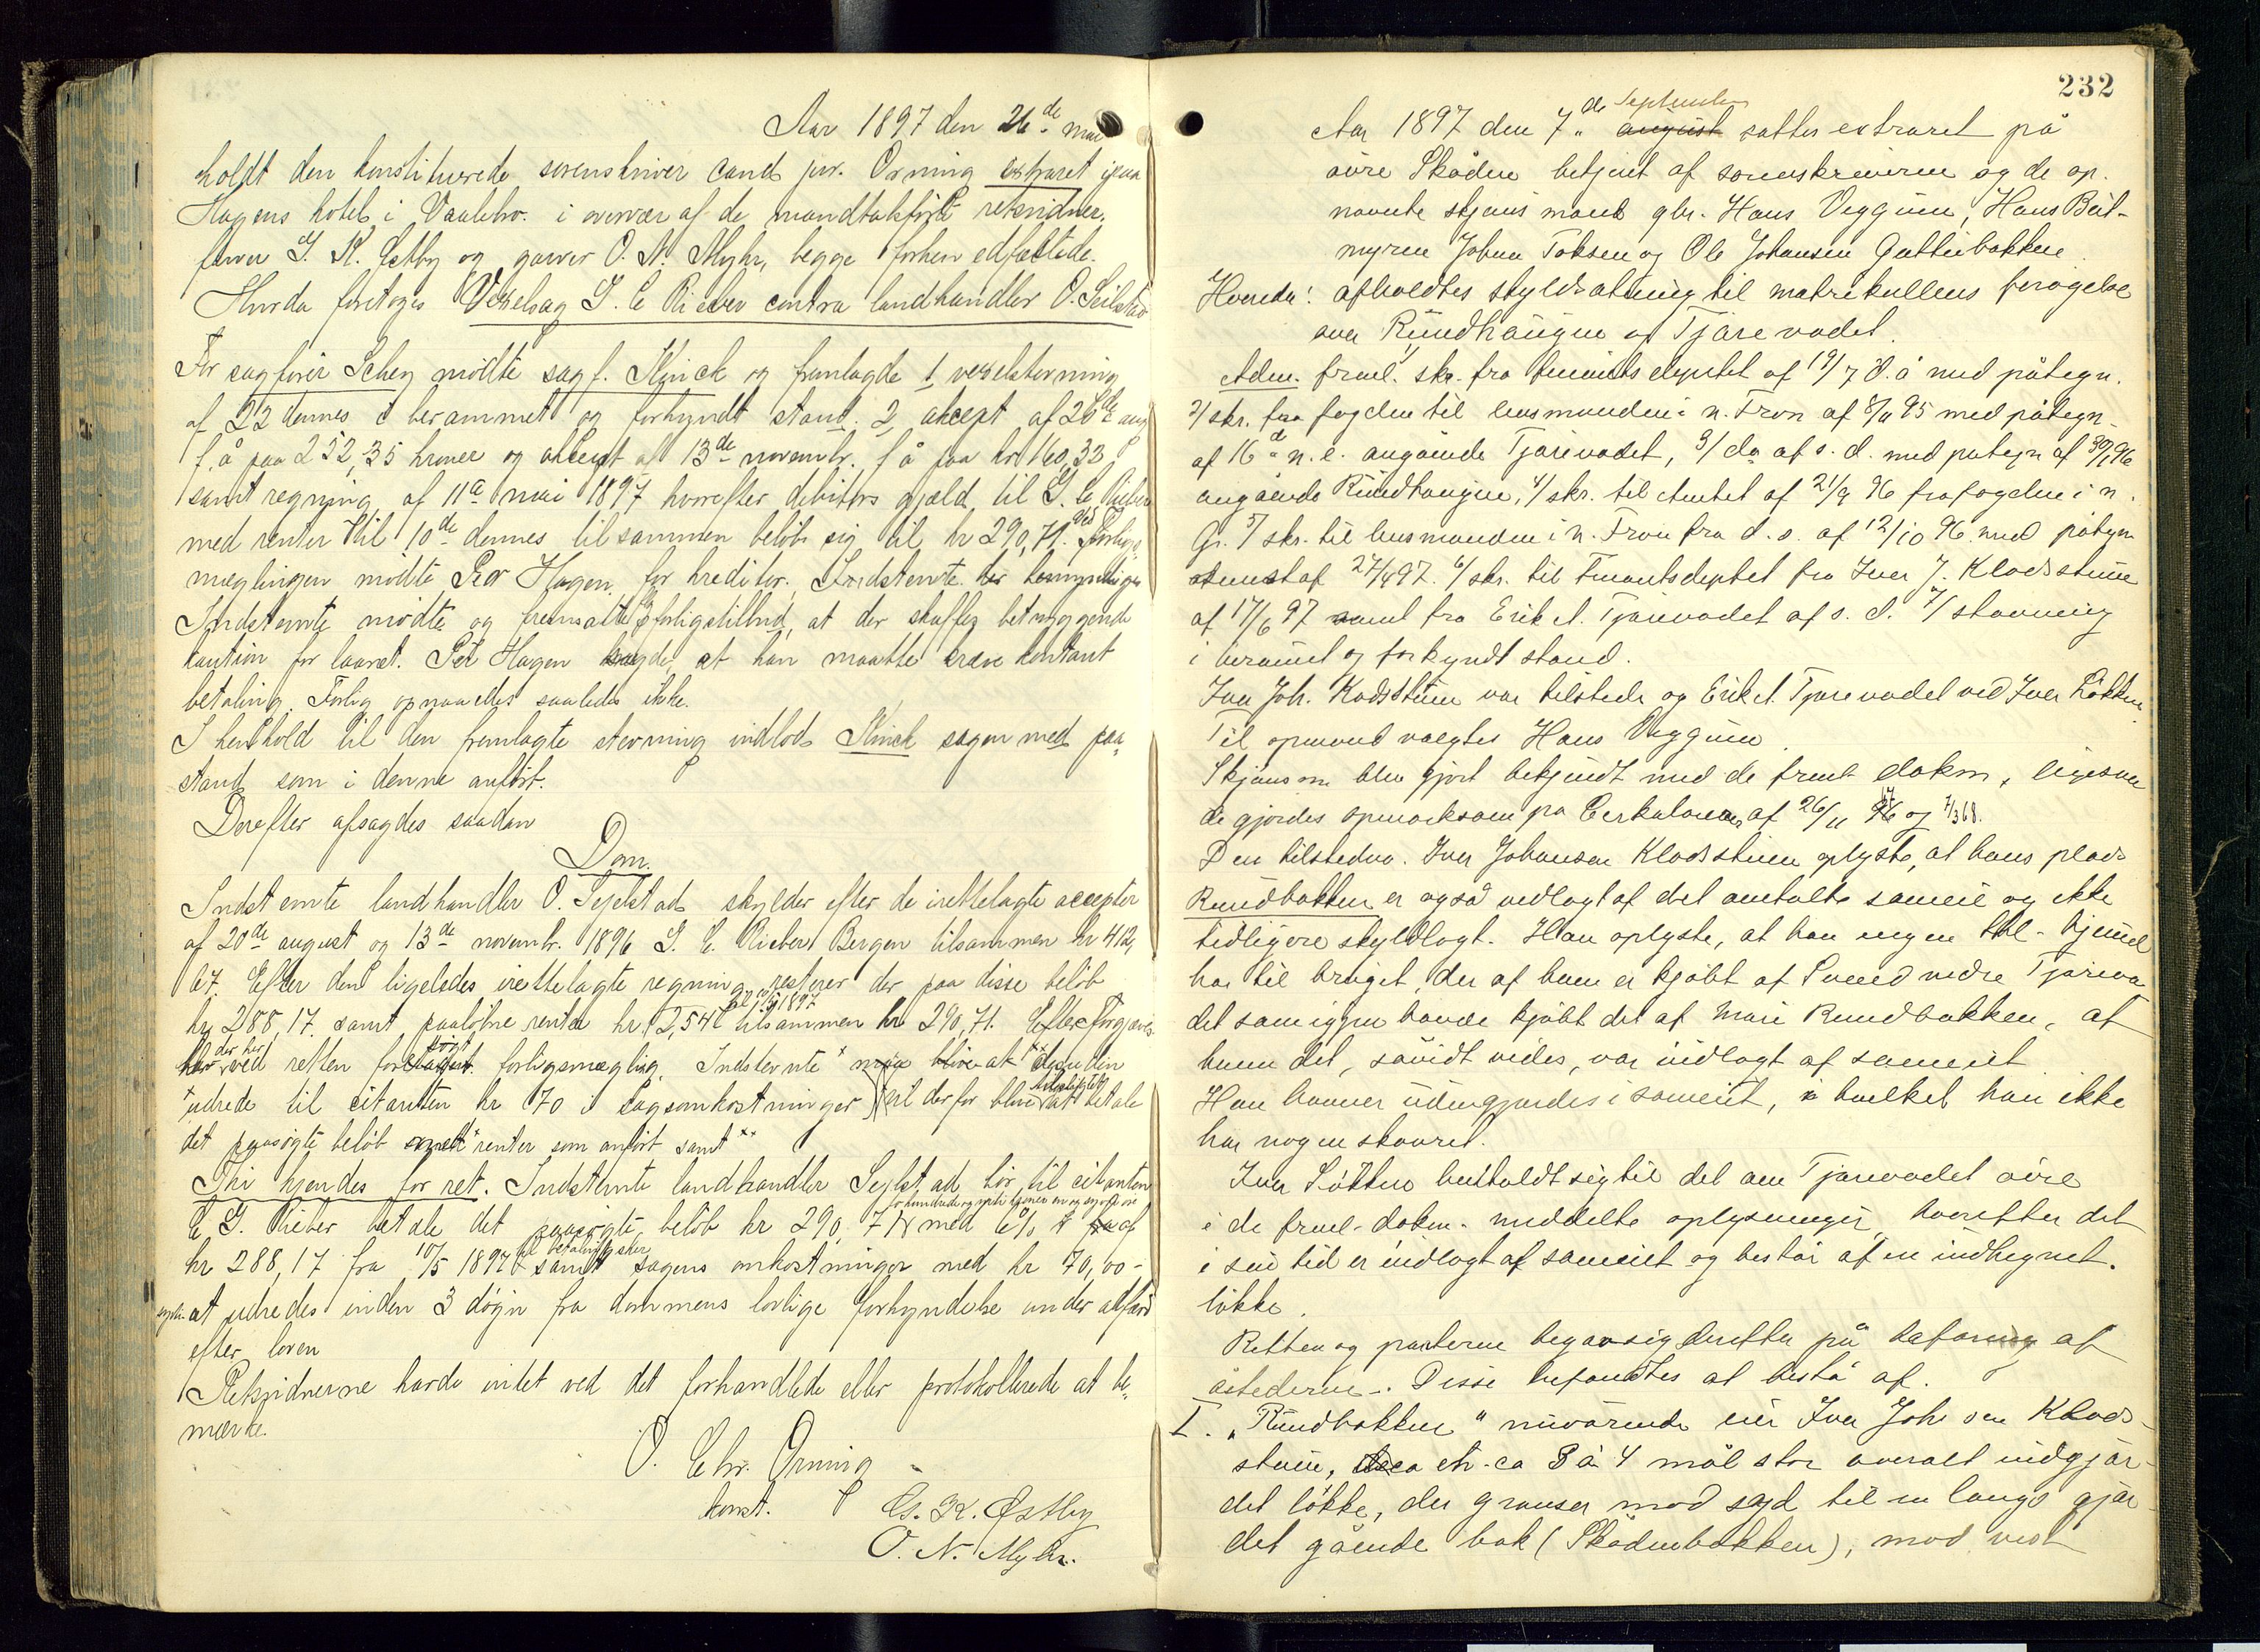 Aar 1897 den 26de mai
holdt den konstituerede sorenskriver cand jur. Orning extraret paa
Hagens hotel i Vaalebro. i overvær af de mandtalsførte retsvidner.
farver G. K. Østby og garver O. N. Myhr, begge forhen edfæstede.
Hvorda foretoges Vexelsag G. C Rieber contra landhandler O. Seilstad
For sagfører Schey mødte sagf. Kinck og fremlagde 1, vexelstevning
af 22 dennes i berammet og forkyndt stand. 2, akcept af 20de aug
f. å paa 252,35 kroner og akcept af 13de novembr. f å paa kr 160,33
samt regning af 11te mai 1897 hvorefter debitors gjæld til G. C. Rieber
med renter til 10de dennes tilsammen beløb sig til kr 290,71. Ved Forligs-
mæglingen mødte Per Hagen for kreditor.
Indstevnte mødte og fremsatte forligstilbud, at der skaffes betryggende
kaution for laanet. Per Hagen sagde, at han maatte kræve kontant
betaling. Forlig opnaaedes saaledes ikke.
I henhold til den fremlagte stevning indlod Kinck sagen med paa-
stand som i denne anført.
Derefter afsagdes saadan
Dom.
Indstevnte landhandler O. Sejelstad skylder efter de irettelagte accepter
af 20de august og 13de novembr. 1896 G. C. Rieber Bergen tilsammen kr 412,
67. Efter den ligeledes irettelagte regning resterer der paa disse beløb
kr 288,17. samt paaløbne renter kr 2,54 til 10/5 1897 tilsammen kr 290,71. Efter forgjæves
der her ved retten forsøgt forligsmægling. Indstevnte x
x udrede til citanten kr 70 i sagsomkostninger vil derfor blive tilpligtet at betale
det paasøgte beløb med renter som anført samt xx
Thi kjendes for ret. Indstevnte landhandler Sejlstad bør til citanten
C G. Rieber betale det paasøgte beløb kr 290,71 to hundrede og nitti kroner en og sytti øre med 6% af
kr 288,17 fra 10/5 1897 til betaling sker samt sagens omkostninger med kr 70,00 -
sytti - at udredes inden 3 døgn fra dommens lovlige forkyndelse under adfærd
efter loven
Retsvidnerne havde intet ved det forhandlede eller protokollerede at be-
mærke.
O. Chr. Orning
konst.
G. K. Østby
O. N. Myhr.
232
Aar 1897 den 7de september august sattes extraret på
øvre Skåden betjent af sorenskriveren og de op-
nævnte skjønsmænd gbr. Hans Veggum, Hans Beit-
myren Johan Toksen og Ole Johansen Gutterbakken.
Hvorda: afholdtes skyldsætning til matrikullens forøgelse
over Rundhaugen og Tjærevodet.
Adm. freml. 1/ skr. fra finantsdeptet af 19/7 d. å med påtegn.
2/ skr. fra fogden til lensmanden i n. Fron af 8/11 95 med påtegn-
af 16de n. e. angående Tjærevodet, 3/ do af s. d. med påtegn af
angående Rundhaugen, 4/ skr. til Amtet af 21/9 96 fra fogden i n.
Gr. 5/ skr. til lensmanden i n. Fron fra d. s. af 12/10 96 med påtegn
senest af 27/4 97. 6/ skr. til Finantsdeptet fra Iver J. Klodsstuen
af 17/6 97 samt fra Erik A. Tjærevodet af s. d. 7/ stævning
i beramet og forkyndt stand.
Iver Joh. Klodsstuen var tilstede og Erik A. Tjærevodet ved Iver Løkken
Til opmand valgtes Hans Veggum.
Skjønsm blev gjort bekjendt med de freml dokm, ligesom
de gjordes opmærksom på Cirkulærer af 26/11 67 og 7/3 68.
Den tilstedev. Iver Johansen Klodsstuen oplyste, at hans plads
Rundbakken er også indlagt af det omtalte sameie og ikke
tidligere skyldlagt. Han oplyste, at han ingen thl- hjemmel
har til bruget, der af ham er kjøbt af Svend nedre Tjæreva
det som igjen havde kjøbt det af Mari Rundbakken, at
hvem det, såvidt vides, var indlagt af sameiet.
Han havner udengjærdes i sameiet, i hvilket han ikke
har nogen skovret.
Iver Løkken henholdt sig til det om Tjærevodet øvre
i de freml- dokm- meddelte oplysninger hvorefter det
i sin tid er indlagt af sameiet og består af en indhegnet
løkke.
Retten og parterne begav sig derefter på befaring af
åstederne. Disse befandtes at bestå af.
I. "Rundbakken" nuværende eier Iver Johsen Klods-
stuen, en ca 3 à 4 mål stor overalt indgjær-
det løkke, der grænser mod syd til en langs gjær-
det gående bæk (Skådenbækken), mod vest